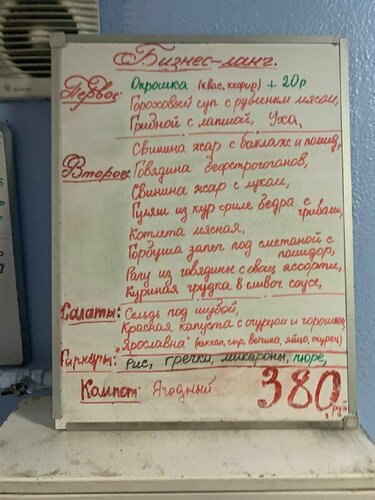 Бизнес-ланч.
Первое: Окрошка (квас, кефир) + 20р
Гороховый суп с рубиным мясом,
Грибной с лапшой, Уха,
Свинина жар с баклаж и помид,
Второе: Говядина бефстрогонов,
Свинина жар с луком,
Гуляш из кур филе бедра с грибами,
Котлета мясная,
Горбуша запеч под сметаной с помидор,
Рагу из говядины с овощ ассорти,
Куриная грудка в сливоч соусе,
Салаты: Сельдь под шубой,
Красная капуста с огурцом и горошком,
"Ярославна" (кекап, сыр, ветчина, яйцо, огурец)
Гарниры: Рис, гречка, макароны, пюре,
Компот: Ягодный
380 руб